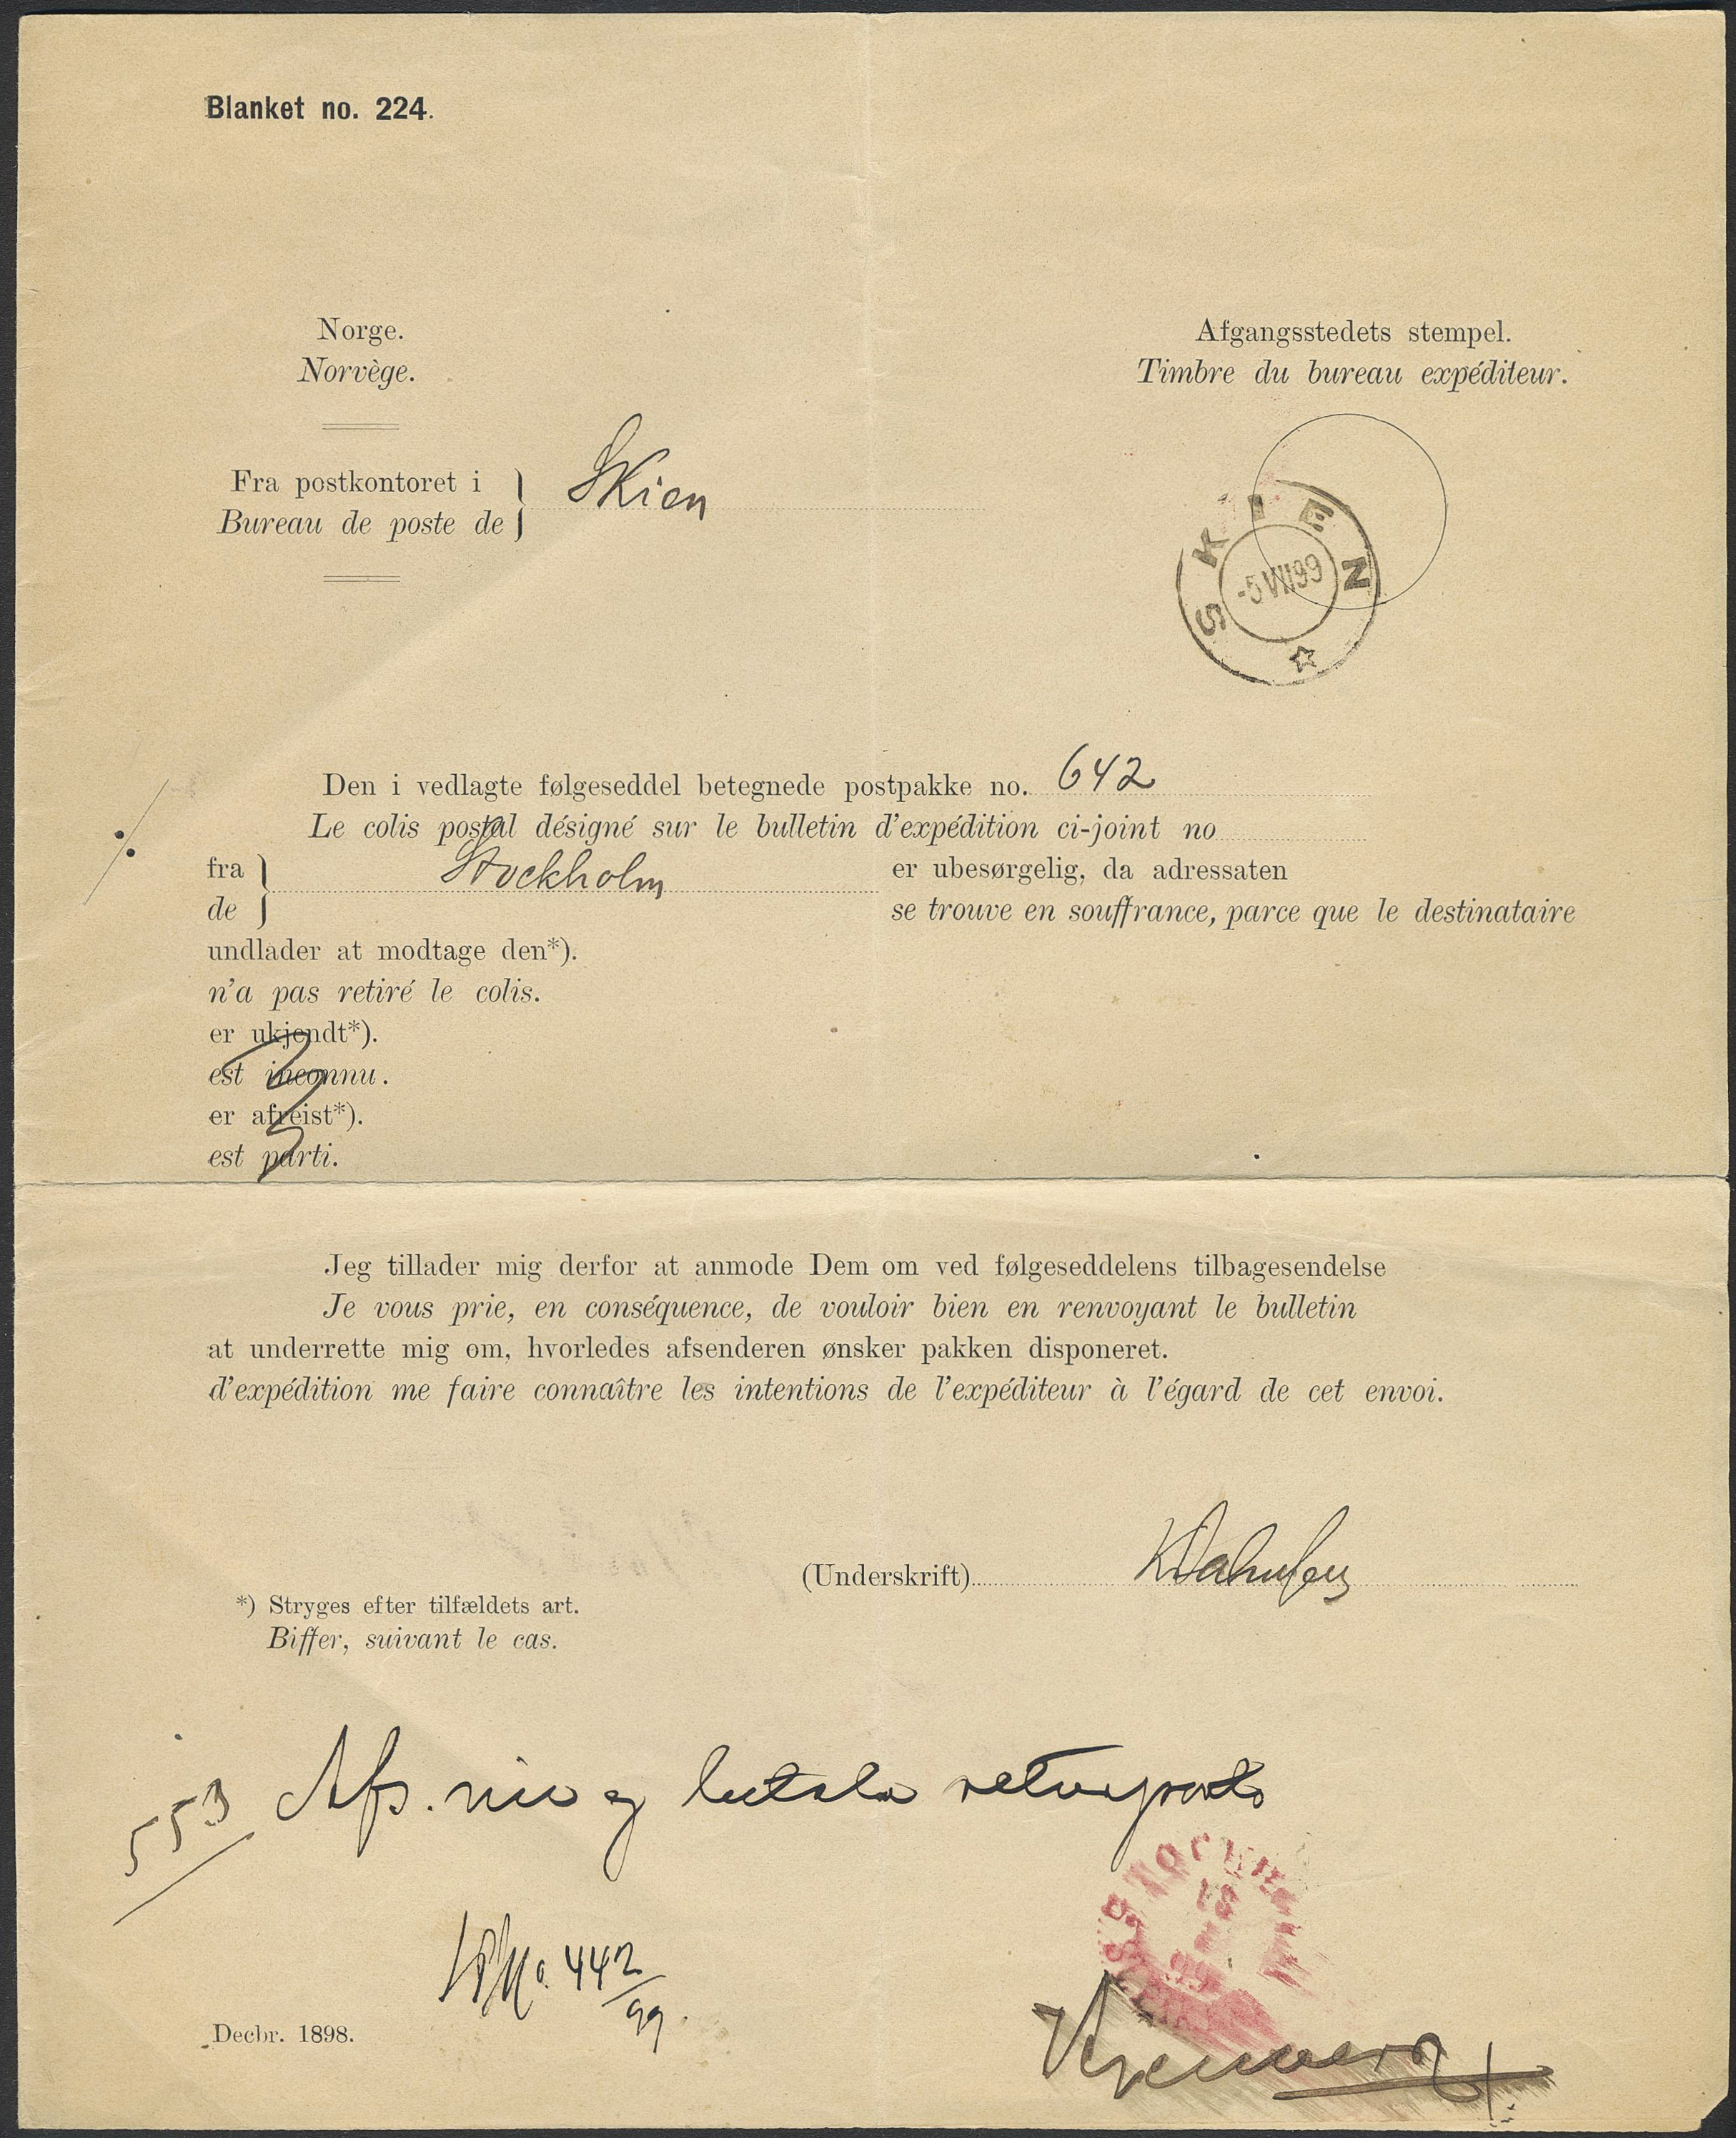 Blanket no. 224.
Norge.
Norvège.
Afgangsstedets stempel.
Timbre du bureau expéditeur.
Fra postkontoret i } Skien
Bureau de poste de }
SKIEN
-5 VIII 99
Den i vedlagte følgeseddel betegnede postpakke no. 642
Le colis postal désigné sur le bulletin d'expédition ci-joint no
fra } Stockholm er ubesørgelig, da adressaten
de } se trouve en souffrance, parce que le destinataire
undlader at modtage den*).
n'a pas retiré le colis.
er ukjendt*).
est inconnu.
er afreist*).
est parti.
Jeg tillader mig derfor at anmode Dem om ved følgeseddelens tilbagesendelse
Je vous prie, en conséquence, de vouloir bien en renvoyant le bulletin
at underrette mig om, hvorledes afsenderen ønsker pakken disponeret.
d'expédition me faire connaître les intentions de l'expéditeur à l'égard de cet envoi.
(Underskrift)
*) Stryges efter tilfældets art.
Biffer, suivant le cas.
553 Afs.
442/99.
Decbr. 1898.